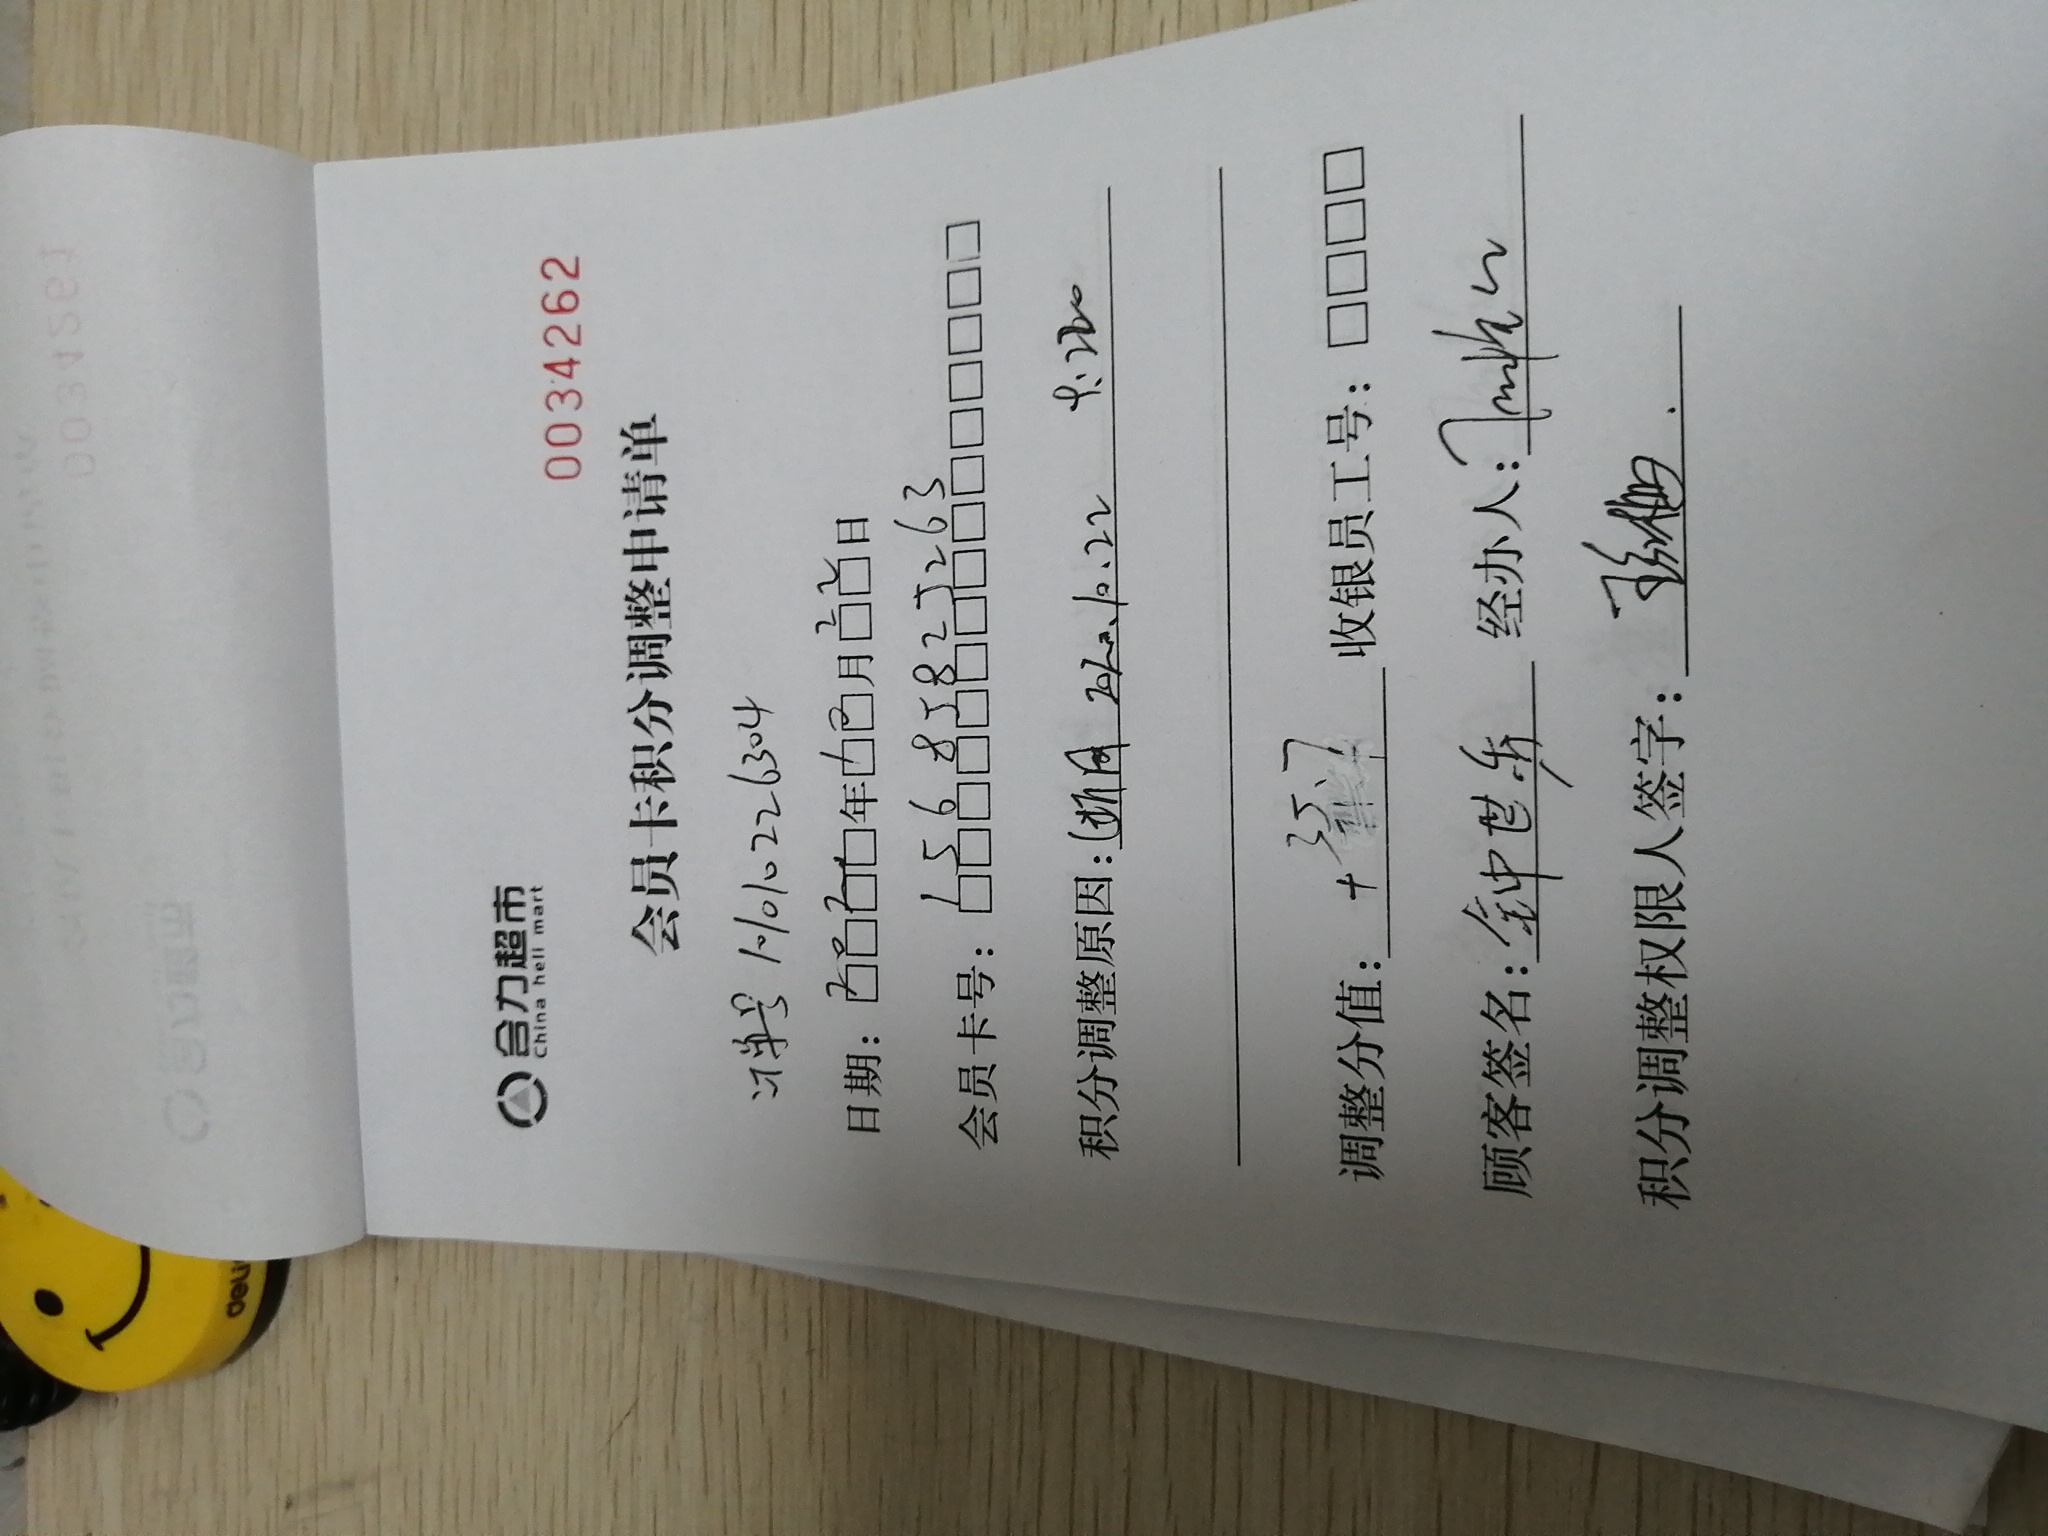 合力超市
China heli mart
0034262
会员卡积分调整申请单
订单号 1010226304
日期：2020年10月22日
会员卡号：15685825263
积分调整原因： 2020.10.22
调整分值：+35.7 收银员工号：
顾客签名： 经办人：
积分调整权限人签字：
deli
0034261